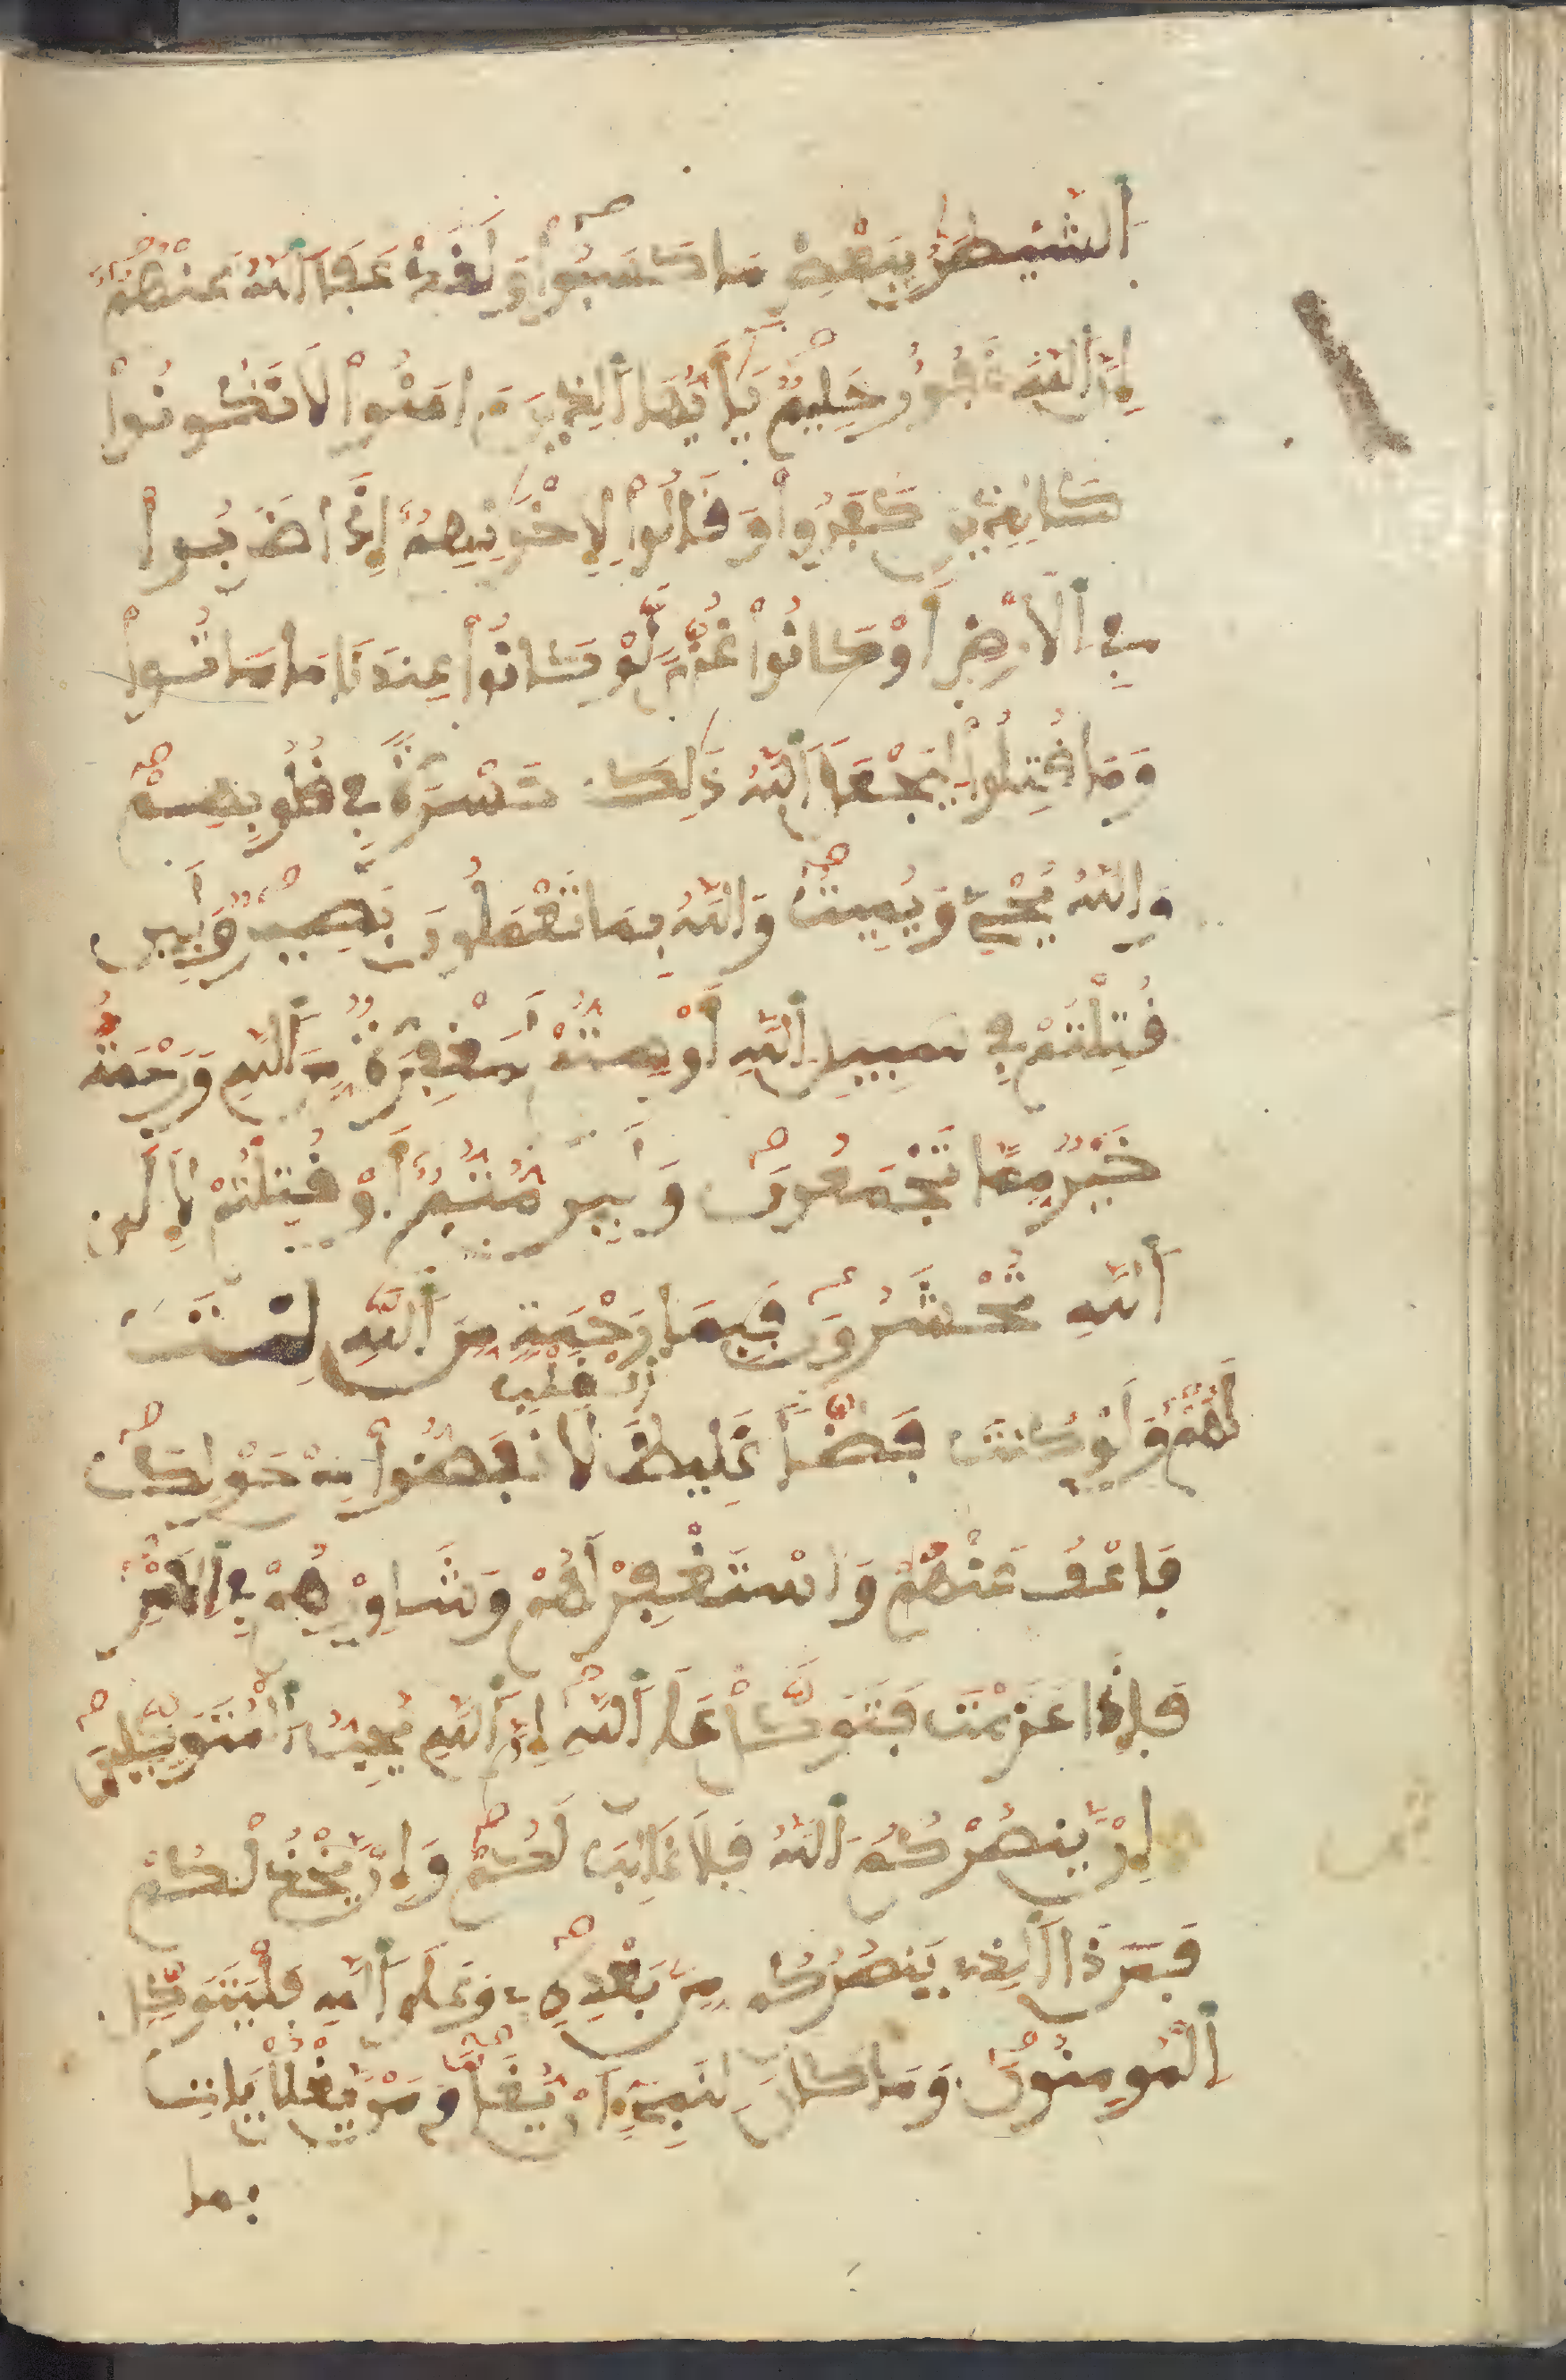 اَ۬لشَّيْطَٰنُ بِبَعْضِ مَا كَسَبُواْ وَلَقَدْ عَفَا اَ۬للَّهُ عَنْهُمُۥٓ
إِنَّ اَ۬للَّهَ غَفُورٌ حَلِيمٌ يَٰٓأَيُّهَا اَ۬لذِينَ ءَامَنُواْ لَا تَكُونُواْ
كَالذِينَ كَفَرُواْ وَقَالُواْ لِإِخْوَٰنِهِمُۥٓ إِذَا ضَرَبُواْ
فِے اِ۬لَارْضِ أَوْ كَانُواْ غُزّيٗ لَّوْ كَانُواْ عِندَنَا مَا مَاتُواْ
وَمَا قُتِلُواْ لِيَجْعَلَ اَ۬للَّهُ ذَٰلِكَ حَسْرَةٗ فِے قُلُوبِهِمْ
وَاللَّهُ يُحْيِۦ وَيُمِيتُ وَاللَّهُ بِمَا تَعْمَلُونَ بَصِيرٌ وَلَئِن
قُتِلْتُمْ فِے سَبِيلِ اِ۬للَّهِ أَوْ مِتُّمْ لَمَغْفِرَةٌ مِّنَ اَ۬للَّهِ وَرَحْمَةٌ
خَيْرٌ مِّمَّا تَجْمَعُونَ وَلَئِن مُّتُّمُۥٓ أَوْ قُتِلْتُمْ لَإِلَى
اَ۬للَّهِ تُحْشَرُونَ فَبِمَا رَحْمَةٖ مِّنَ اَ۬للَّهِ لِنتَ
لَهُمْ وَلَوْ كُنتَ فَظّاً غَلِيظَ اَ۬لْقَلْبِ لَانفَضُّواْ مِنْ حَوْلِكَ
فَاعْفُ عَنْهُمْ وَاسْتَغْفِرْ لَهُمْ وَشَاوِرْهُمْ فِے اِ۬لَامْرِ
فَإِذَا عَزَمْتَ فَتَوَكَّلْ عَلَى اَ۬للَّهِ إِنَّ اَ۬للَّهَ يُحِبُّ اُ۬لْمُتَوَكِّلِينَ
إِنْ يَّنصُرْكُمُ اُ۬للَّهُ فَلَا غَالِبَ لَكُمْ وَإِنْ يَّخْذُلْكُمْ
فَمَن ذَا اَ۬لذِے يَنصُرُكُم مِّنۢ بَعْدِهِۦ وَعَلَى اَ۬للَّهِ فَلْيَتَوَكَّلِ
اِ۬لْمُومِنُونَ وَمَا كَانَ لِنَبِےٓءٍ اَنْ يُّغَلَّ وَمَنْ يَّغْلُلْ يَاتِ
بما